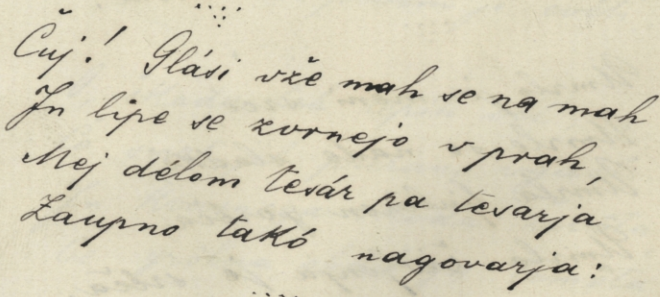 Čuj! Glási vže mah se na mah
In lipe se zvrnejo v prah,
Mej délom tesár pa tesarja
Zaupno takó nagovarja: